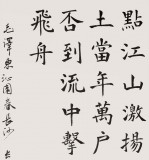 點江山激揚
土當年萬户
否到流中擊
飛舟
毛澤東沁園春長沙